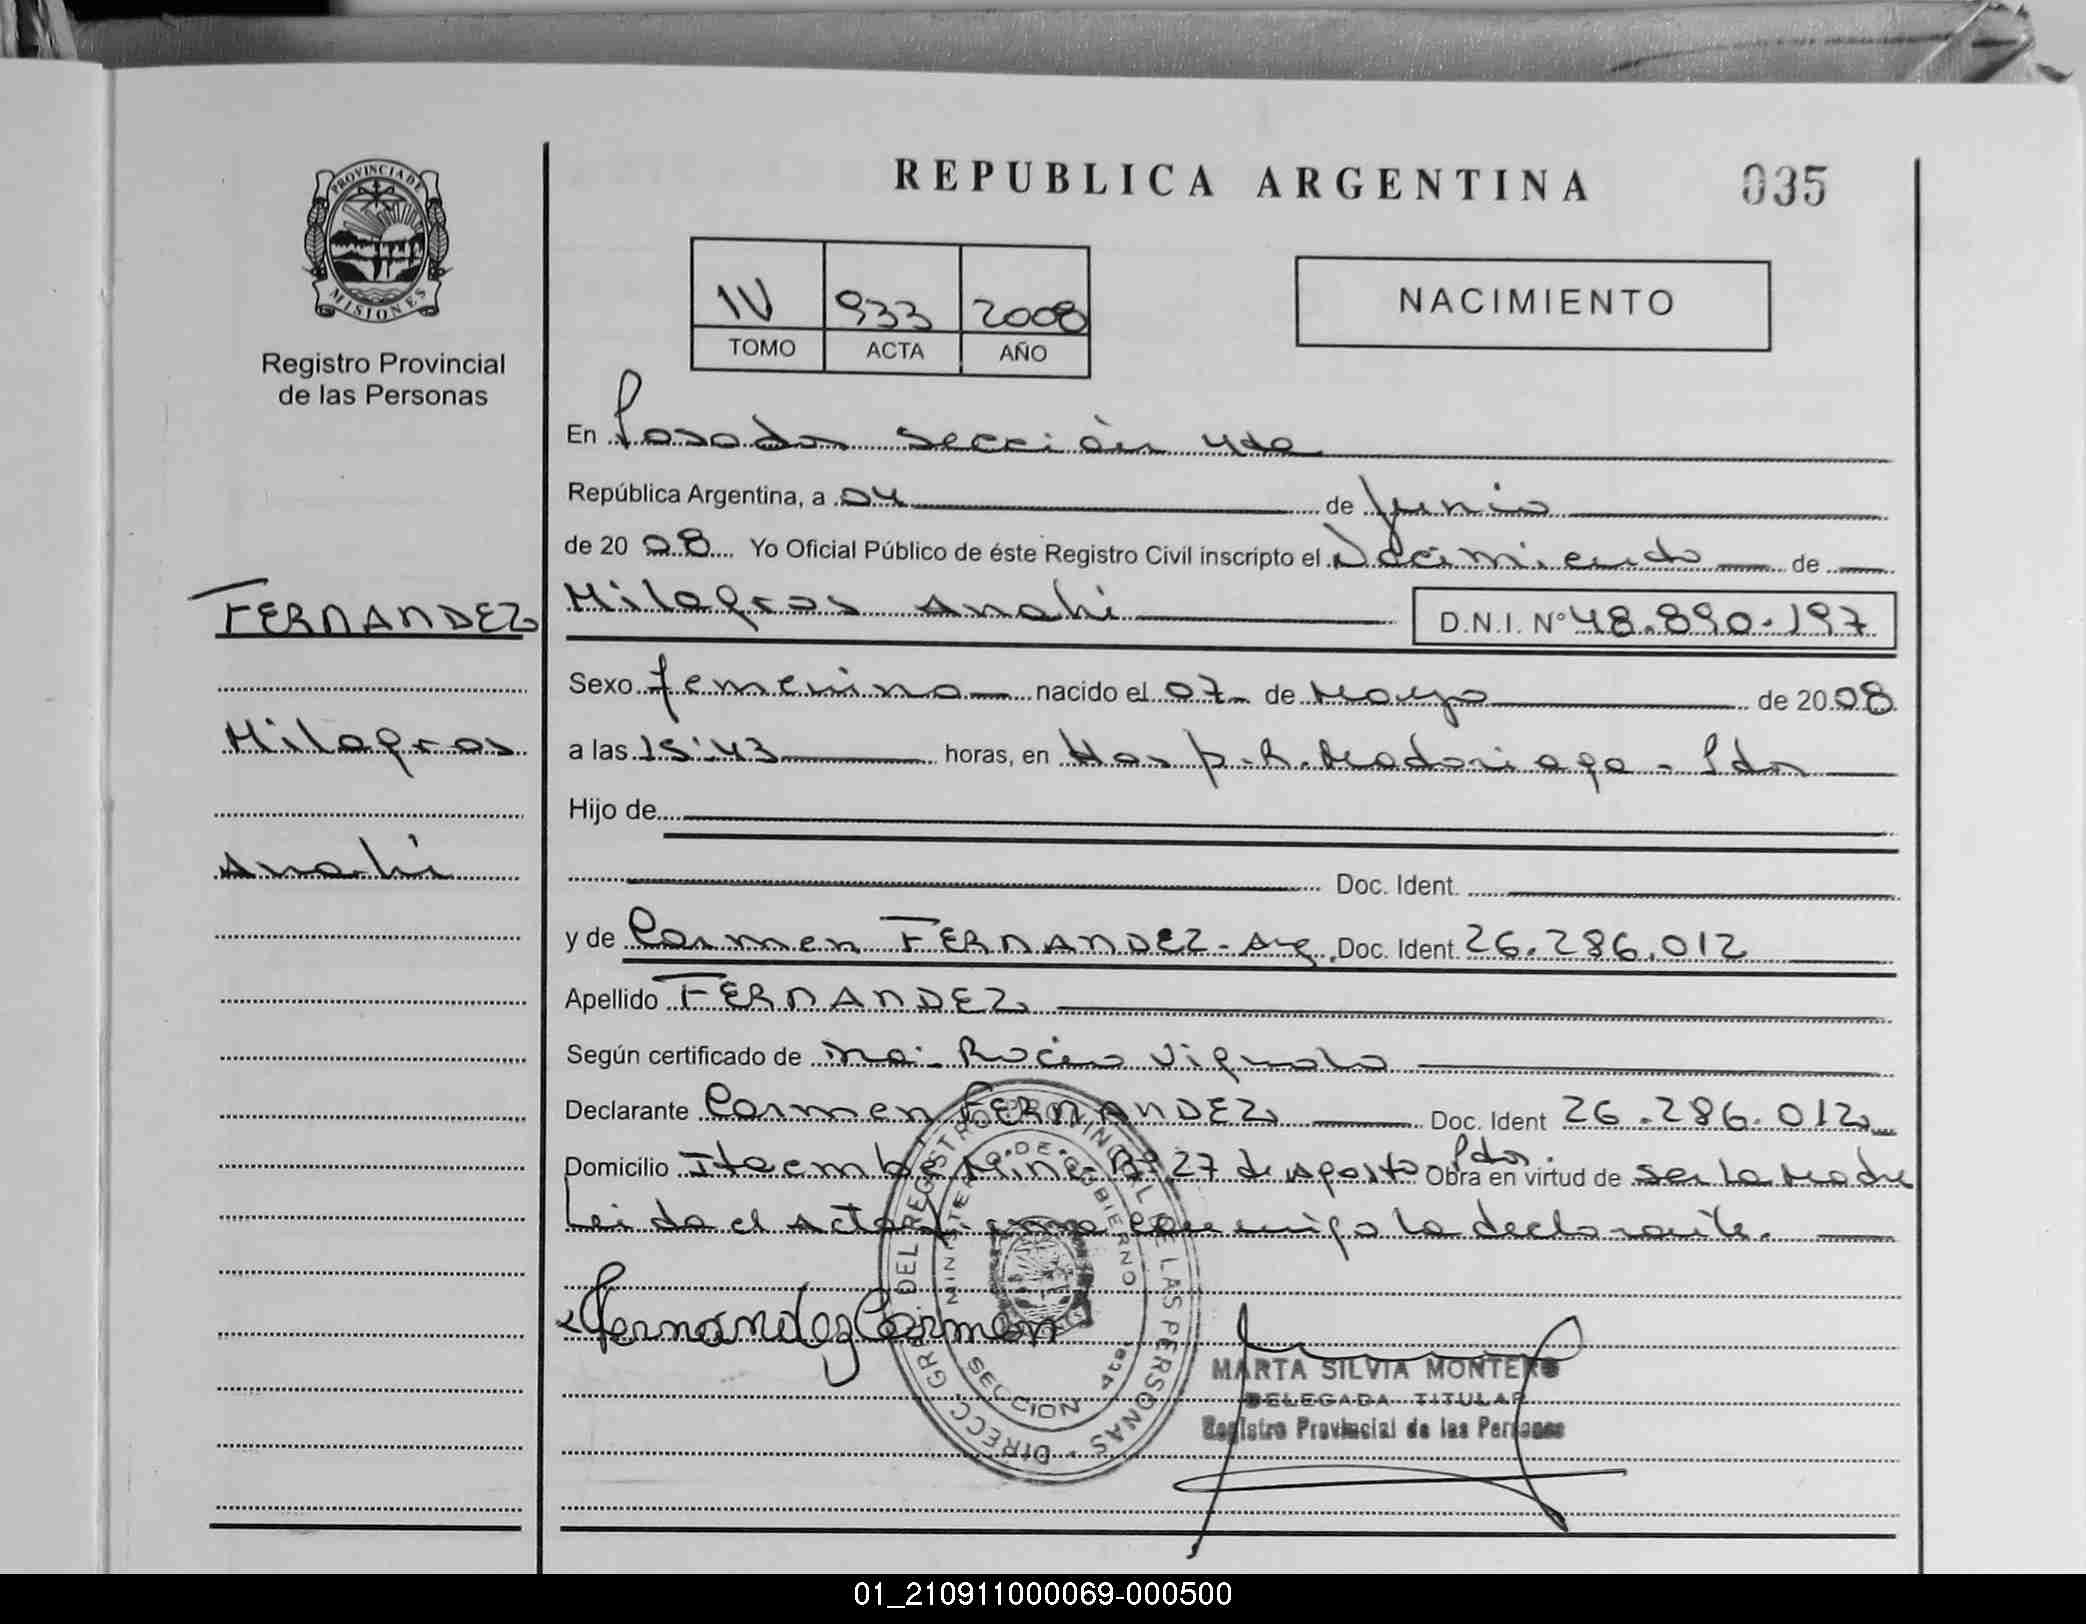 REPUBLICA ARGENTINA
035
PROVINCIA DE
MISIONES
Registro Provincial
de las Personas
IV 933 2008
TOMO ACTA AÑO
NACIMIENTO
En Posadas sección 4ta
República Argentina, a 04 de Junio
de 20 08 Yo Oficial Público de éste Registro Civil inscripto el Nacimiento de
FERNANDEZ
Milagros Anahi
D.N.I. Nº 48.890.197
Sexo femenino nacido el 07 de Mayo de 20 08
Milagros
a las 15:43 horas, en Hosp. R. Madariaga - Pdas
Hijo de
Anahi
Doc. Ident.
y de Carmen FERNANDEZ - Arg. Doc. Ident. 26.286.012
Apellido FERNANDEZ
Según certificado de Ma. Rocio Vignolo
Declarante Carmen FERNANDEZ Doc. Ident 26.286.012
Domicilio Itaembé Mini - Bº 27 de Agosto Pdas. Obra en virtud de ser la Madre
Leida el Acta firma conmigo la declarante.
Fernandez Carmen
DIRECC. GRAL DEL REGISTRO PROVINCIAL DE LAS PERSONAS
MINISTERIO DE GOBIERNO
SECCION 4ta.
MARTA SILVIA MONTERO
DELEGADA TITULAR
Registro Provincial de las Personas
01_210911000069-000500